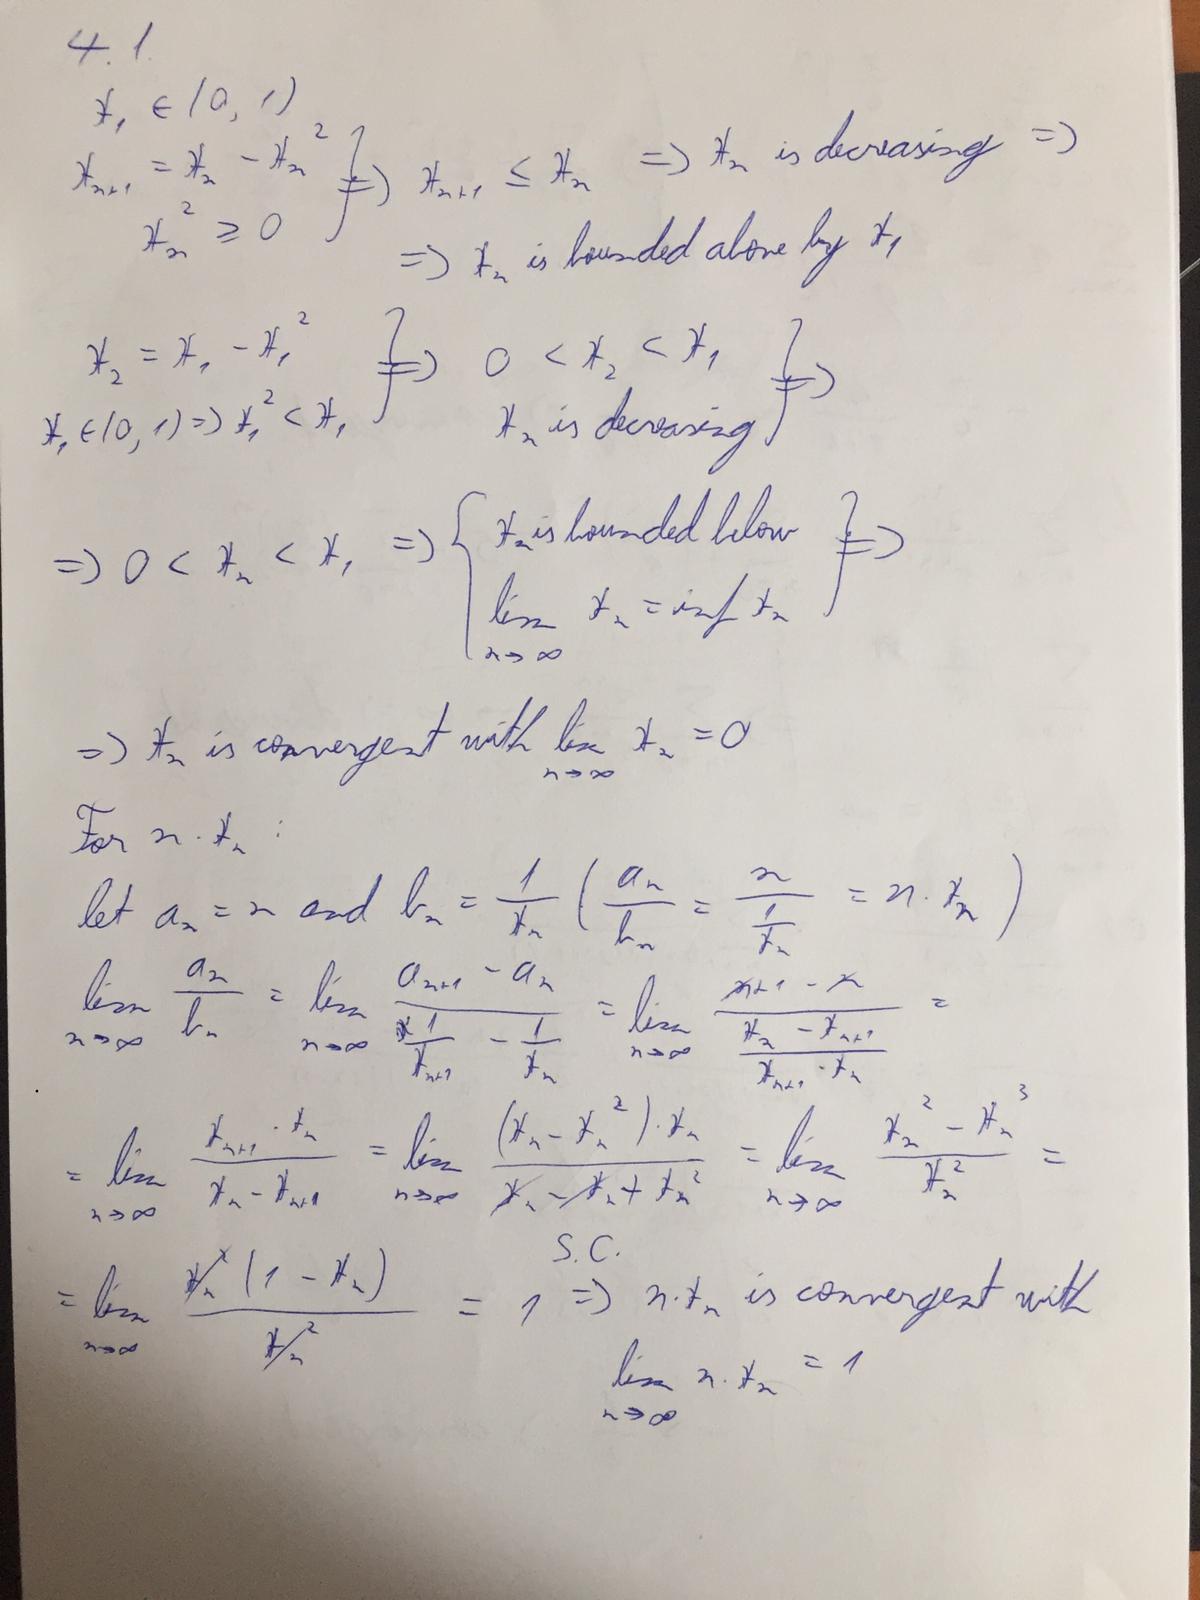 4.1.
x₁ ∈ (0, 1)
xₙ₊₁ = xₙ - xₙ² } => xₙ₊₁ ≤ xₙ => xₙ is decreasing =>
xₙ² ≥ 0
=> xₙ is bounded above by x₁
x₂ = x₁ - x₁² } => 0 < x₂ < x₁ } =>
x₁ ∈ (0, 1) => x₁² < x₁ xₙ is decreasing
=> 0 < xₙ < x₁ => { xₙ is bounded below } =>
lim n→∞ xₙ = inf xₙ
=> xₙ is convergent with lim n→∞ xₙ = 0
For n · xₙ :
let aₙ = n and bₙ = 1/xₙ (aₙ/bₙ = n/(1/xₙ) = n · xₙ)
lim n→∞ aₙ/bₙ = lim n→∞ (aₙ₊₁ - aₙ)/(1/xₙ₊₁ - 1/xₙ) = lim n→∞ (n+1 - n)/((xₙ - xₙ₊₁)/(xₙ₊₁ · xₙ)) =
= lim n→∞ (xₙ₊₁ · xₙ)/(xₙ - xₙ₊₁) = lim n→∞ ((xₙ - xₙ²) · xₙ)/(xₙ - xₙ + xₙ²) = lim n→∞ (xₙ² - xₙ³)/xₙ² =
= lim n→∞ (xₙ² (1 - xₙ))/xₙ² = 1 S.C. => n · xₙ is convergent with
lim n→∞ n · xₙ = 1